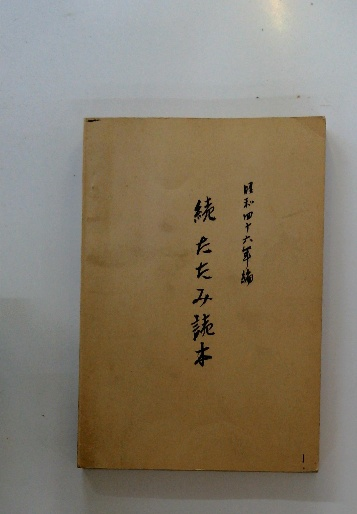 昭和四十六年編
続たたみ読本